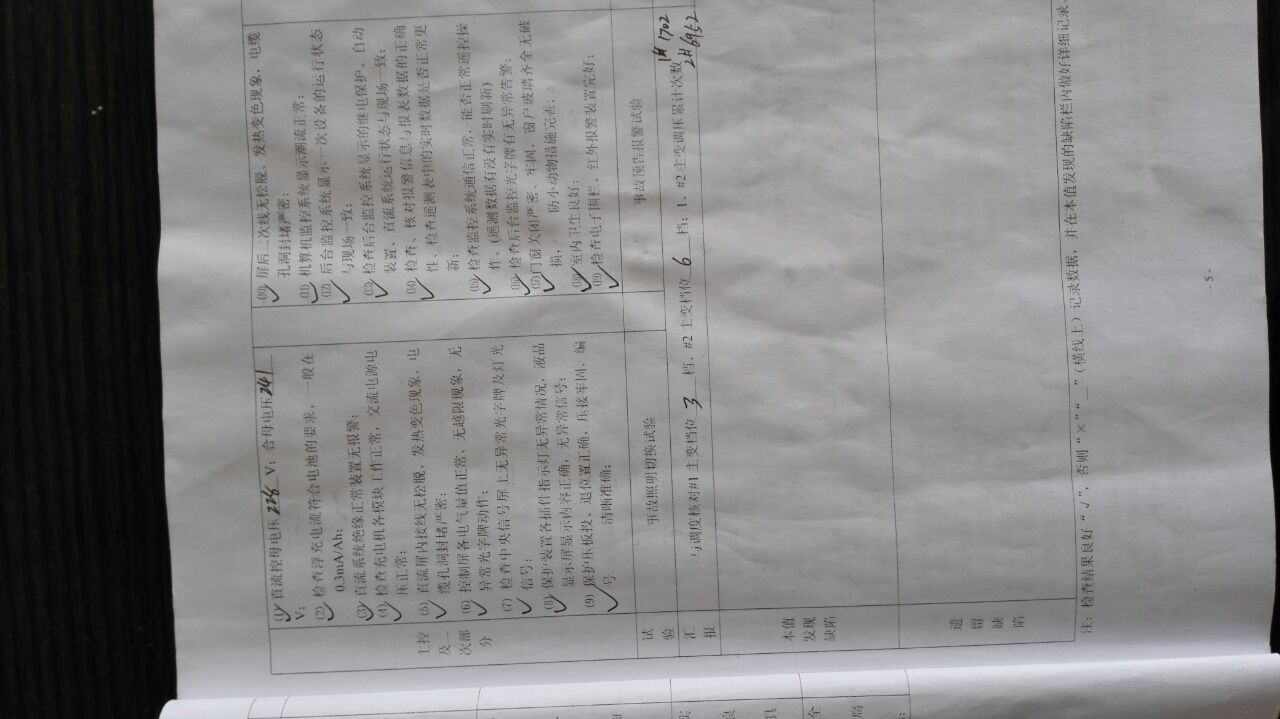 主控
及二
次部
分
(1) 直流控母电压 228 V；合母电压 241
V；
(2) 检查浮充电流符合电池的要求，一般在
0.3mA/Ah；
(3) 直流系统绝缘正常装置无报警；
(4) 检查充电机各模块工作正常，交流电源电
压正常；
(5) 直流屏内接线无松脱、发热变色现象，电
缆孔洞封堵严密；
(6) 控制屏各电气量值正常、无越限现象，无
异常光字牌动作；
(7) 检查中央信号屏上无异常光字牌及灯光
信号；
(8) 保护装置各插件指示灯无异常情况，液晶
显示屏显示内容正确，无异常信号；
(9) 保护压板投、退位置正确，压接牢固，编
号 清晰准确；
(10) 屏后二次线无松脱、发热变色现象，电缆
孔洞封堵严密；
(11) 机算机监控系统显示潮流正常；
(12) 后台监控系统显示一次设备的运行状态
与现场一致；
(13) 检查后台监控系统显示的继电保护、自动
装置、直流系统运行状态与现场一致；
(14) 检查、核对报警信息与报表数据的正确
性、检查遥测表中的实时数据是否正常更
新；
(15) 检查监控系统通信正常，能否正常遥控操
作。(遥测数据有没有实时刷新)
(16) 检查后台监控光字牌有无异常告警；
(17) 门窗关闭严密、牢固，窗户玻璃齐全无破
损， 防小动物措施完善；
(18) 室内卫生良好；
(19) 检查电子围栏、红外报警装置完好；
试
验
事故照明切换试验
事故预告报警试验
汇
报
与调度核对#1 主变档位 3 档、#2 主变档位 6 档；1、#2 主变调压累计次数 1# 1702
2# 6952
本值
发现
缺陷
遗
留
缺
陷
注：检查结果良好“√”，否则“×”“__”(横线上）记录数据，并在本值发现的缺陷栏内做好详细记录
- 5 -